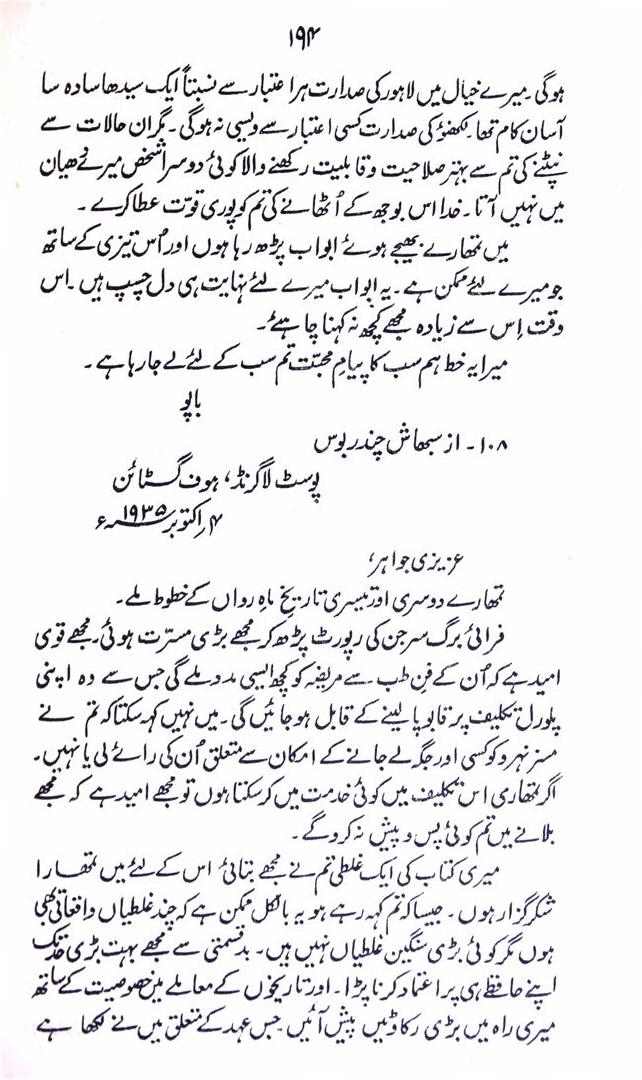 ۱۹۴
ہوگی۔ میرے خیال میں لاہور کی صدارت ہر اعتبار سے نسبتاً ایک سیدھا سادہ سا
آسان کام تھا۔ لکھنؤ کی صدارت کسی اعتبار سے ویسی نہ ہوگی۔ مگر ان حالات سے
نپٹنے کی تم سے بہتر صلاحیت و قابلیت رکھنے والا کوئی دوسرا شخص میرے دھیان
میں نہیں آتا۔ خدا اس بوجھ کے اُٹھانے کی تم کو پوری قوت عطا کرے۔
میں تمھارے بھیجے ہوئے ابواب پڑھ رہا ہوں اور اُس تیزی کے ساتھ
جو میرے لئے ممکن ہے۔ یہ ابواب میرے لئے نہایت ہی دل چسپ ہیں۔ اس
وقت اِس سے زیادہ مجھے کچھ نہ کہنا چاہئے۔
میرا یہ خط ہم سب کا پیامِ محبّت تم سب کے لئے لے جا رہا ہے۔
باپو
۱۰۸۔ از سبھاش چندر بوس
پوسٹ لاگرنڈ، ہوف گسٹائن
۴ اکتوبر ۱۹۳۵ء
عزیزی جواہر،
تمھارے دوسری اور تیسری تاریخِ ماہِ رواں کے خطوط ملے۔
فرائی برگ سرجن کی رپورٹ پڑھ کر مجھے بڑی مسرّت ہوئی۔ مجھے قوی
امید ہے کہ اُن کے فنِ طب سے مریضہ کو کچھ ایسی مدد ملے گی جس سے وہ اپنی
پلورل تکلیف پر قابو پا لینے کے قابل ہو جائیں گی۔ میں نہیں کہہ سکتا کہ تم نے
مسز نہرو کو کسی اور جگہ لے جانے کے امکان سے متعلق اُن کی رائے لی یا نہیں۔
اگر تمھاری اس تکلیف میں کوئی خدمت میں کر سکتا ہوں تو مجھے امید ہے کہ مجھے
بلانے میں تم کوئی پس و پیش نہ کرو گے۔
میری کتاب کی ایک غلطی تم نے مجھے بتائی اس کے لئے میں تمھارا
شکر گزار ہوں۔ جیسا کہ تم کہہ رہے ہو یہ بالکل ممکن ہے کہ چند غلطیاں واقعاتی بھی
ہوں مگر کوئی بڑی سنگین غلطیاں نہیں ہیں۔ بدقسمتی سے مجھے بہت بڑی حد تک
اپنے حافظے ہی پر اعتماد کرنا پڑا۔ اور تاریخوں کے معاملے میں خصوصیت کے ساتھ
میری راہ میں بڑی رکاوٹیں پیش آئیں جس عہد کے متعلق میں نے لکھا ہے